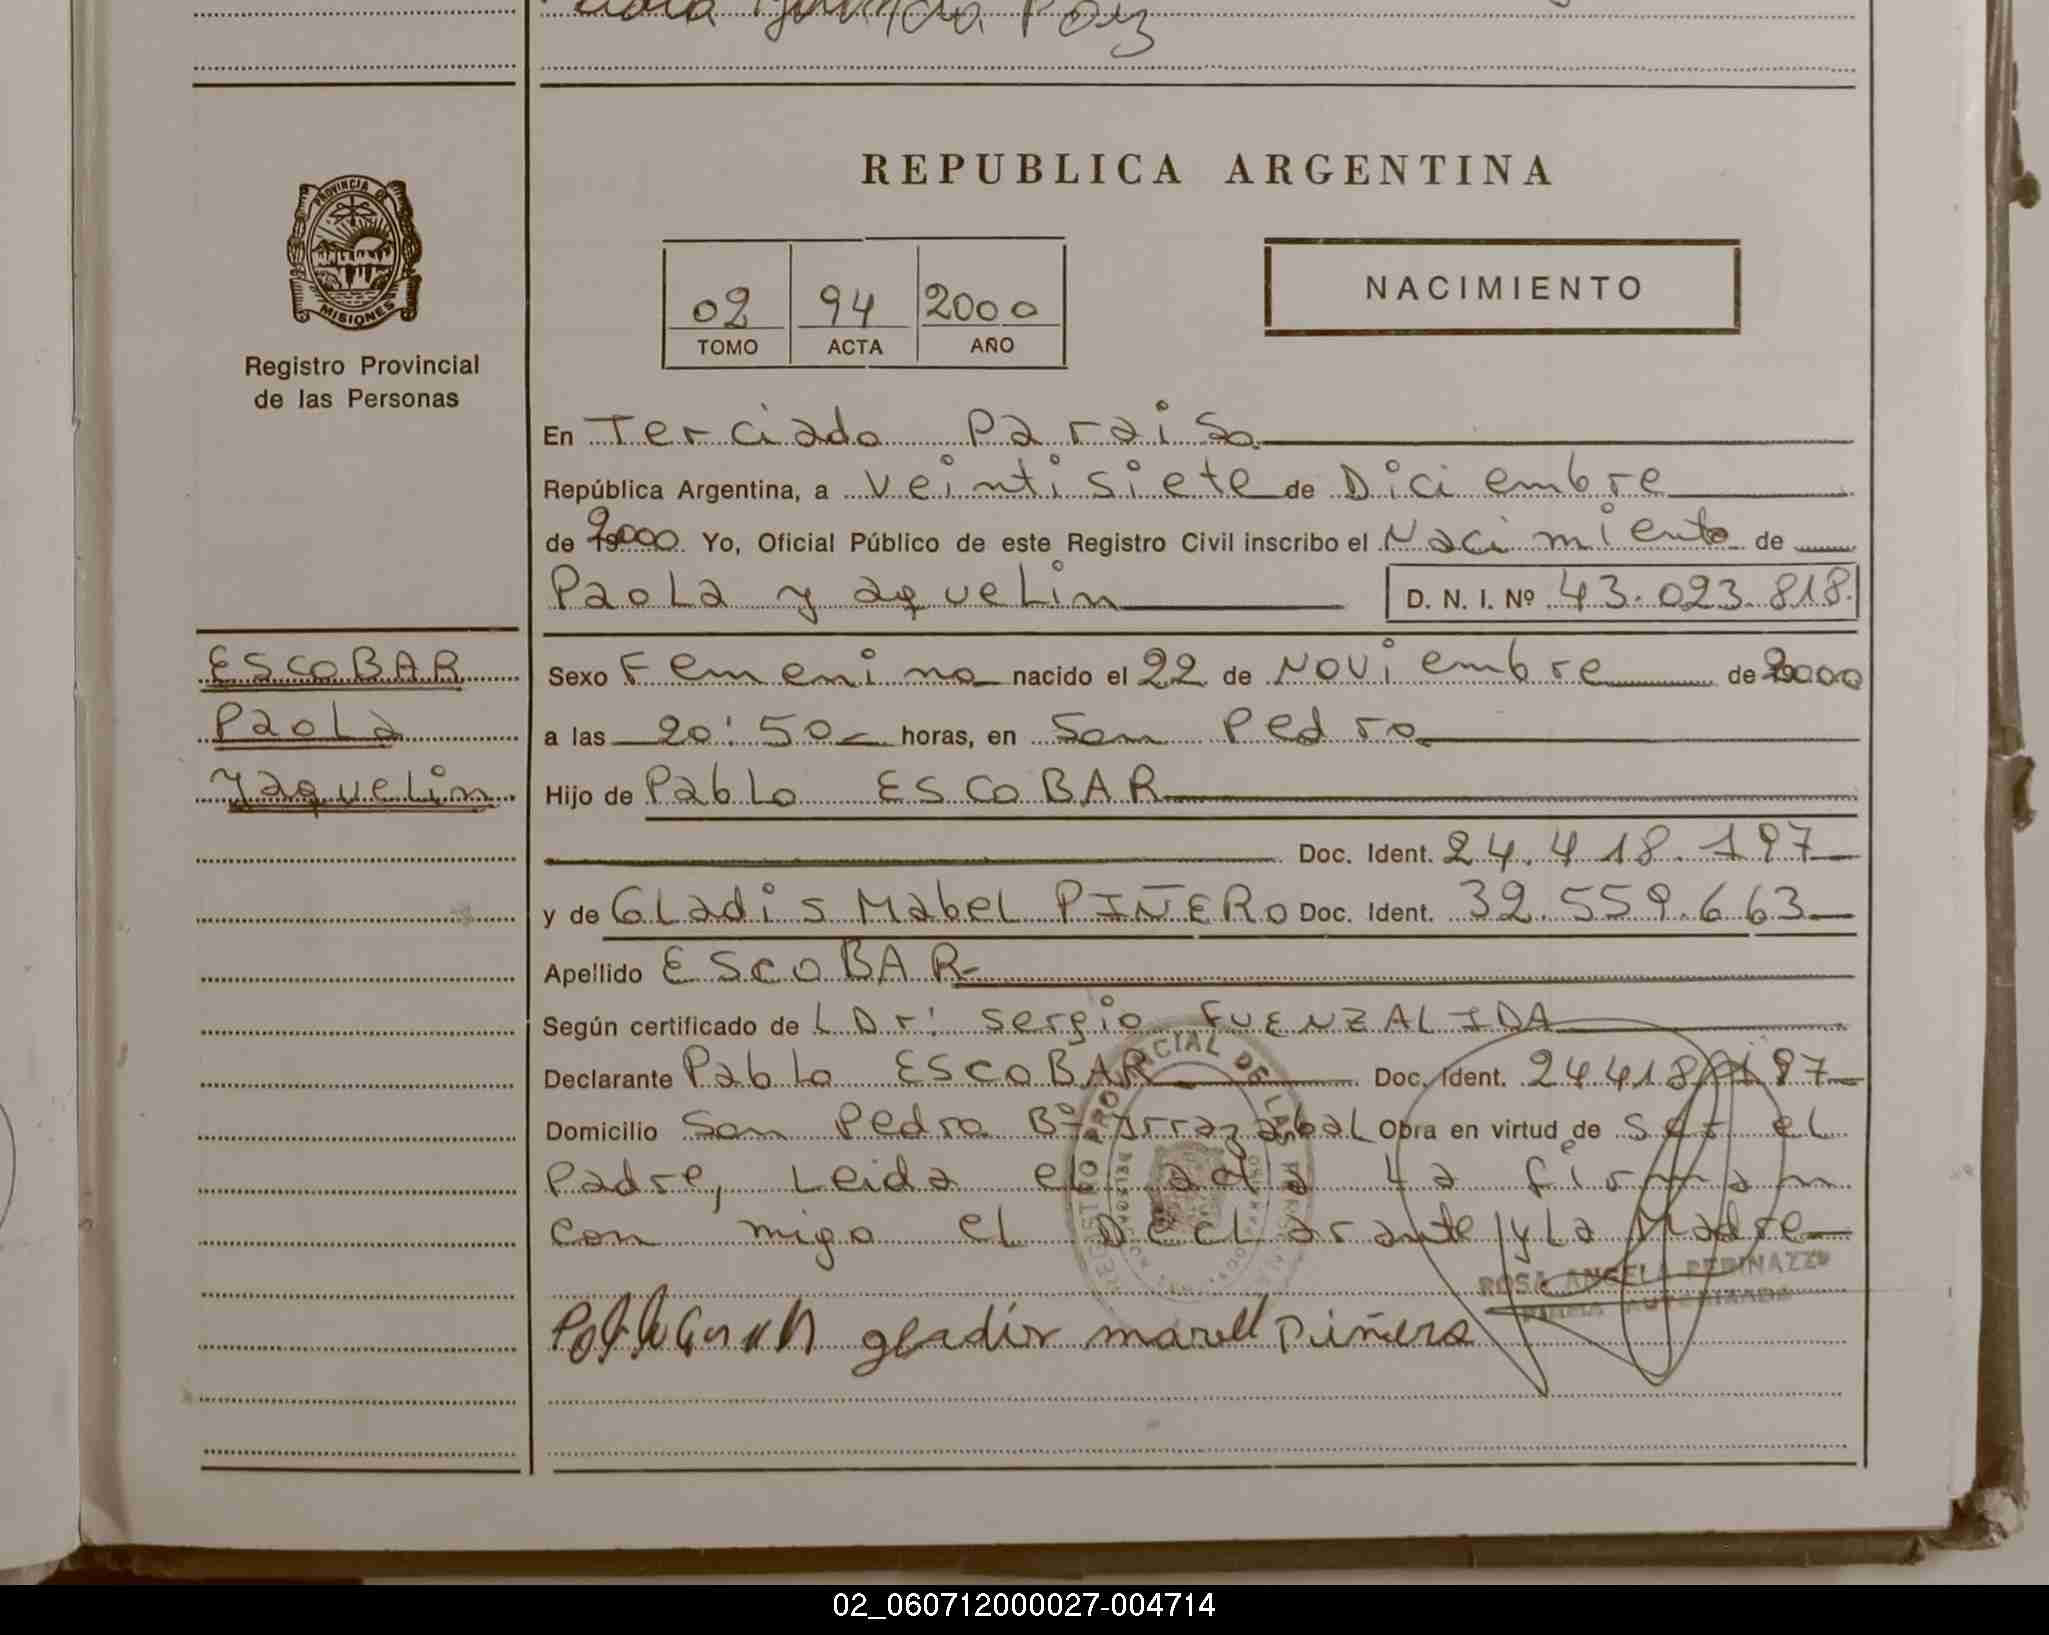 Paz
REPUBLICA ARGENTINA
PROVINCIA DE
MISIONES
Registro Provincial
de las Personas
02 94 2000
TOMO ACTA AÑO
NACIMIENTO
En Terciado Paraiso
República Argentina, a veintisiete de Diciembre
de 2000 Yo, Oficial Público de este Registro Civil inscribo el Nacimiento de
Paola yaquelin D. N. I. Nº 43.023.818.
ESCOBAR
Paola
Yaquelin
Sexo Femenino nacido el 22 de Noviembre de 2000
a las 20:50 horas, en San Pedro
Hijo de Pablo ESCOBAR
Doc. Ident. 24.418.197
y de Gladis Mabel PIÑERO Doc. Ident. 32.559.663
Apellido ESCOBAR
Según certificado de L Dr: Sergio FUENZALIDA
Declarante Pablo ESCOBAR Doc. Ident. 24418197
Domicilio San Pedro Bº Arrazabal Obra en virtud de ser el
Padre, Leida el acta La firman
con migo el Declarante y La Madre
REGISTRO PROVINCIAL DE LAS PERSONAS
ROSA ANGELA PEDINAZZI
gladir marell piñero
02_060712000027-004714